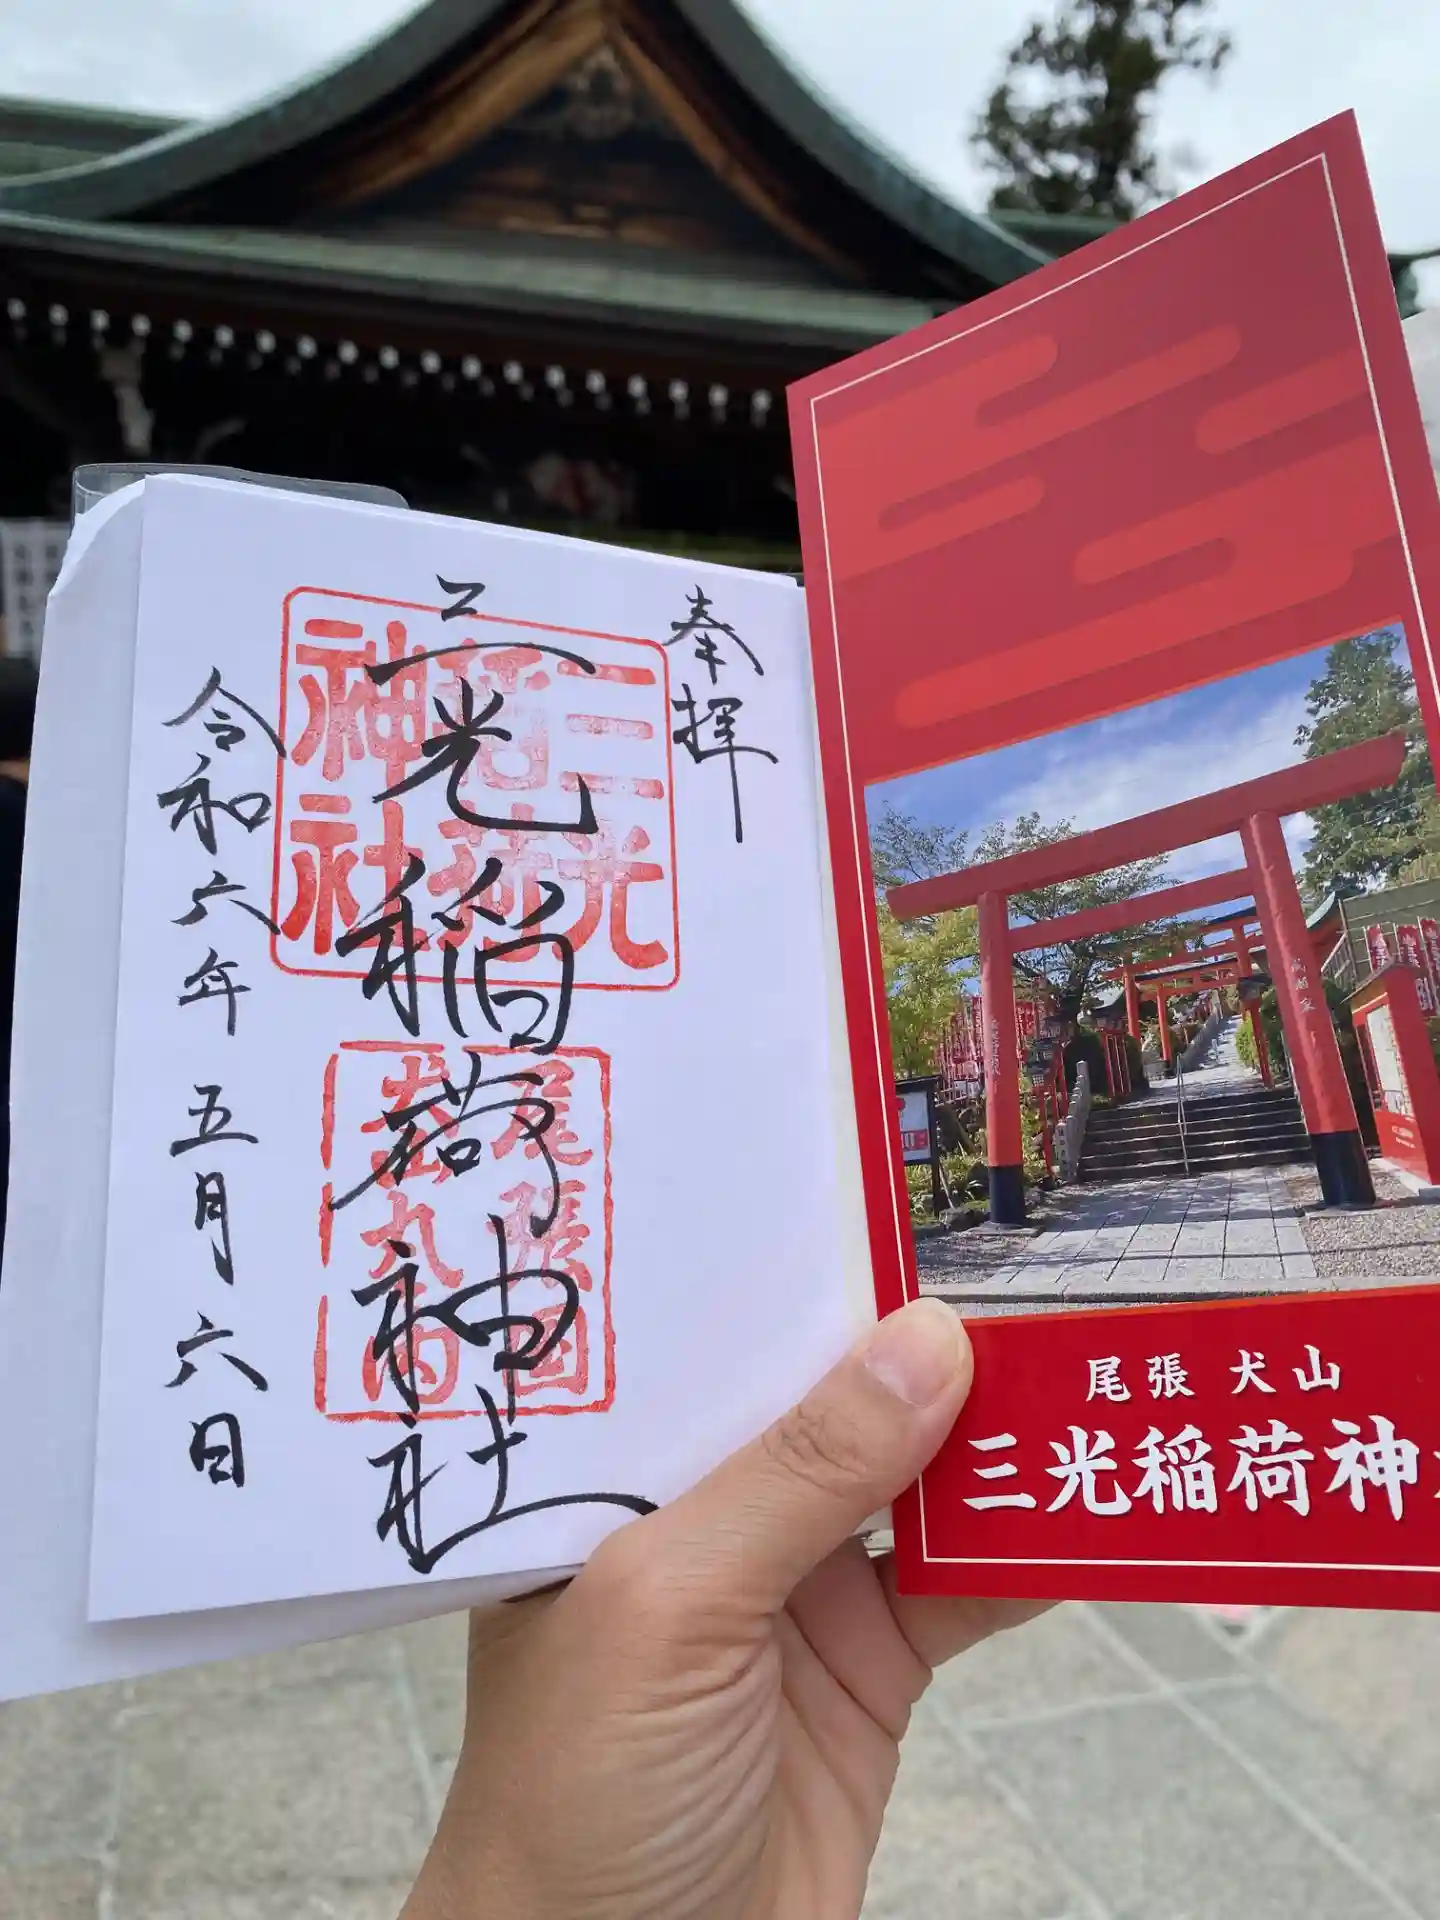 奉拝
三光稲荷神社
令和六年五月六日
三光
稲荷
神社
尾張国
犬山丸の内
尾張 犬山
三光稲荷神